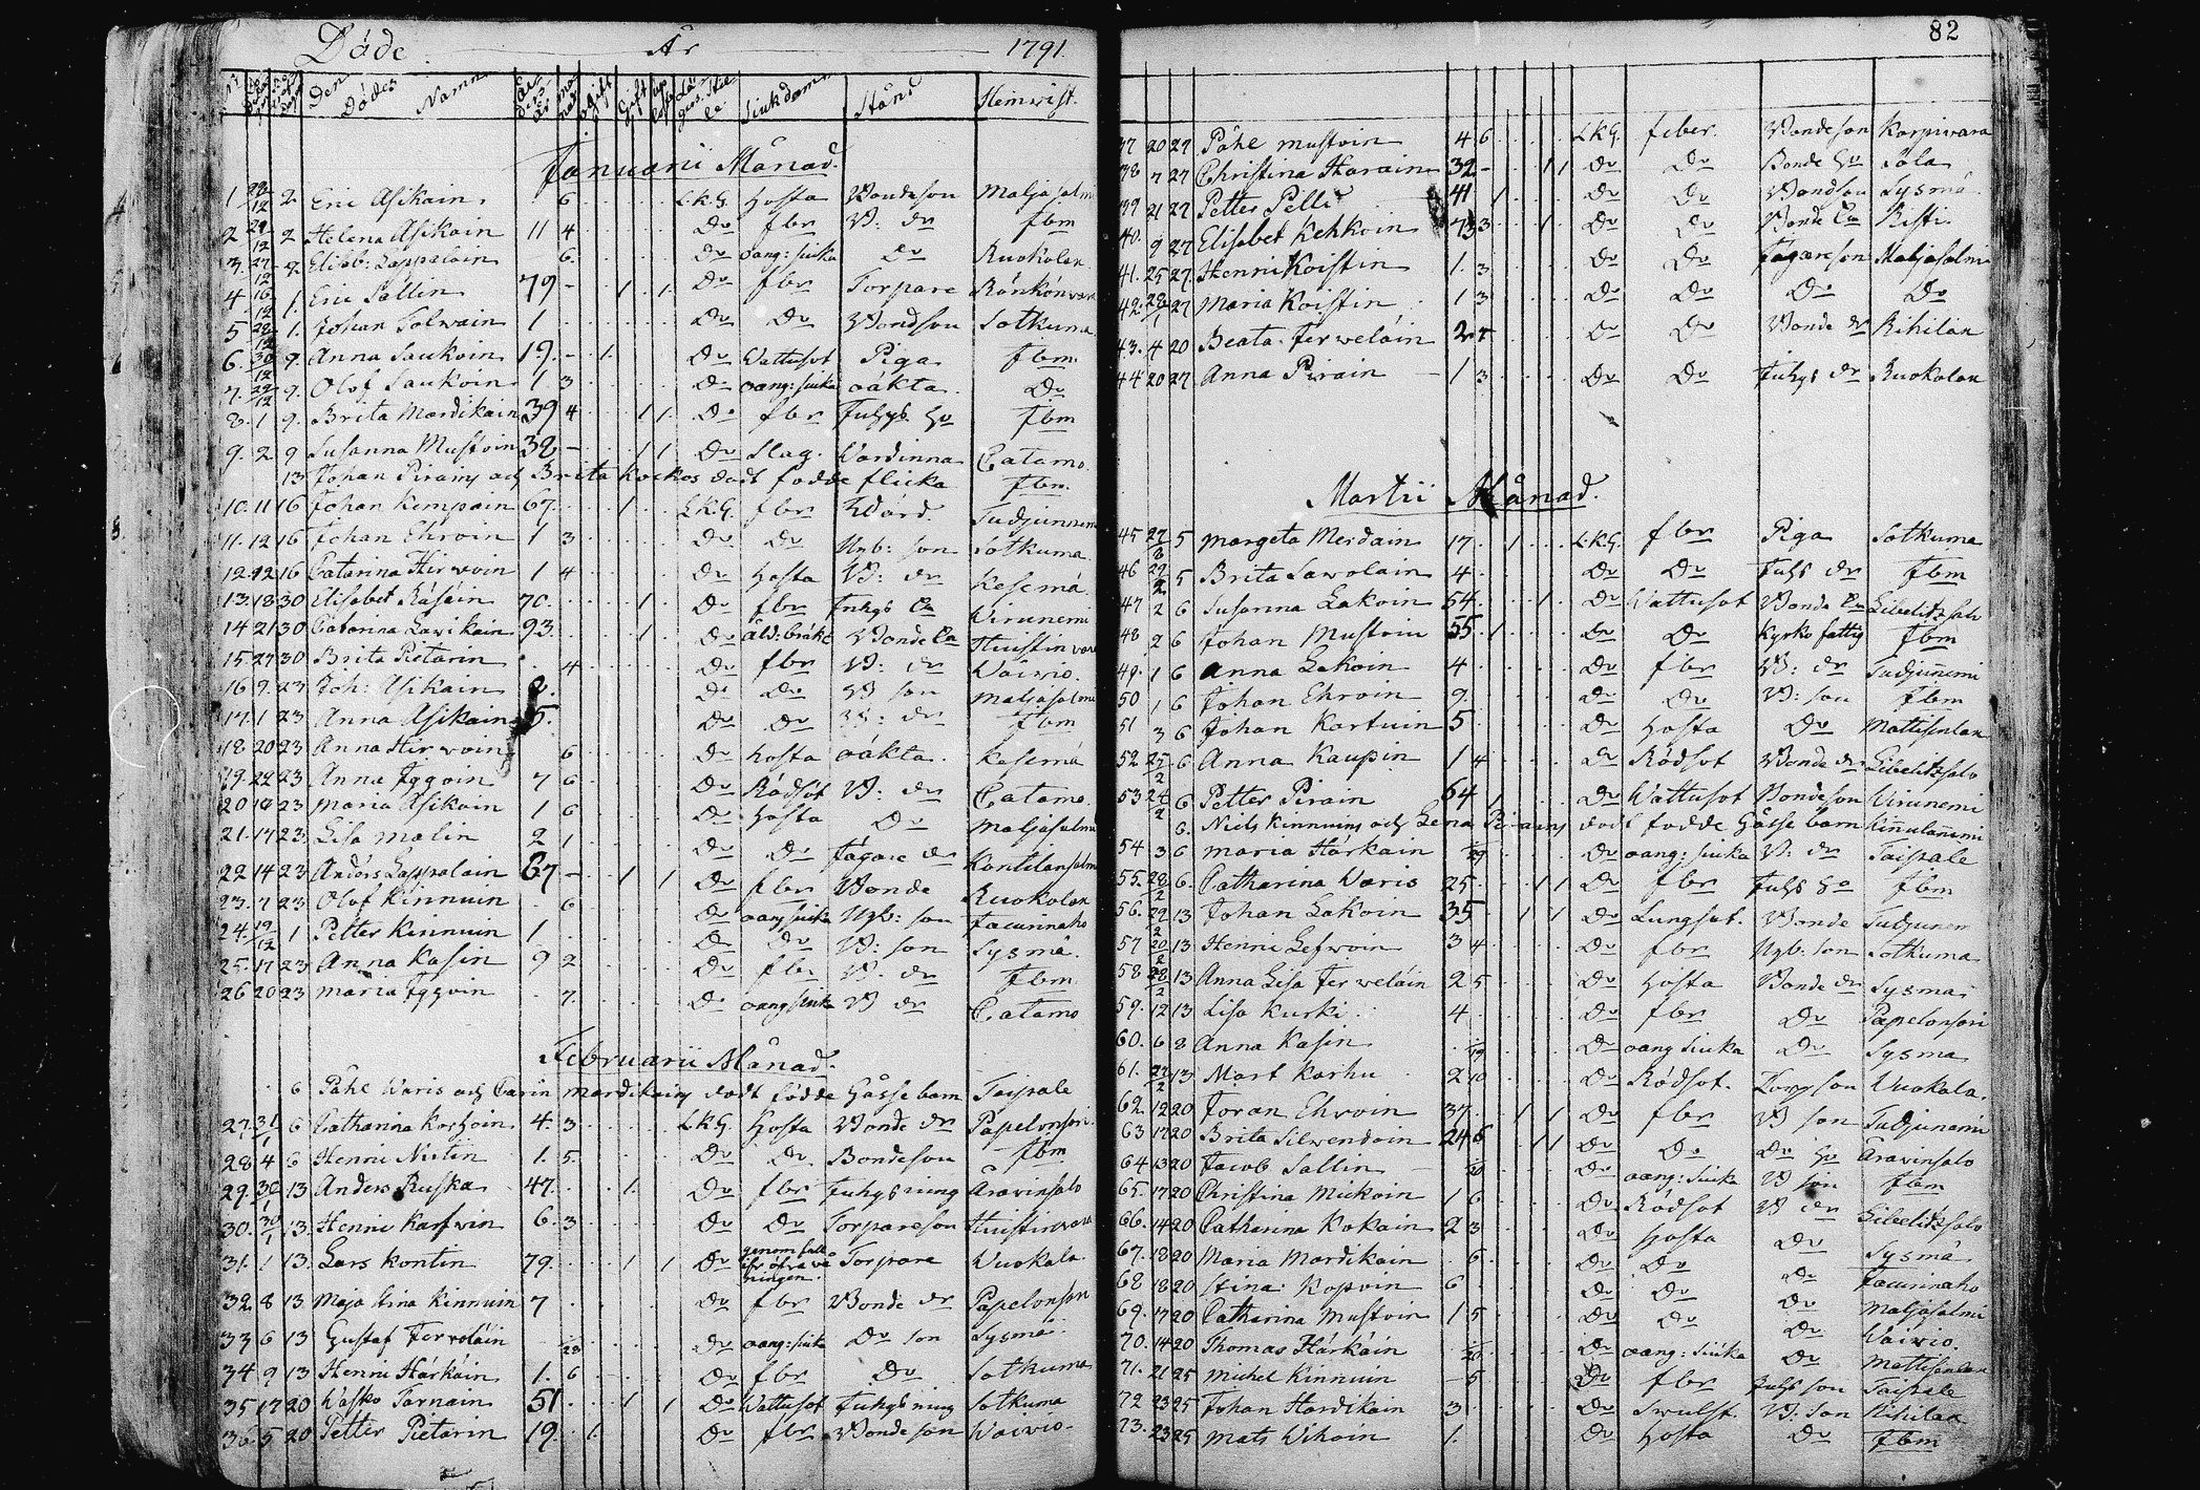 Döde År 1791
Den Dödes Namn Siukdom Stånd Hemwist.
Januarii Månad.
1 28/12 2 Eric Asikain 6 L.K.G. Hosta Bondeson Maljasalmi
2 29/12 2 Helena Asikain 11 4 Do fbr B: dr Jbm
3 27/12 2 Elisab: Lappalain 6. Do oang: siuka Do Ruokolax
4 16/12 1. Eric Sallin 79 - 1 1 Do fbr Torpare Rönkönvara
5 28/12 1. Johan Tolwain 1 Do Do Bondson Sotkuma
6. 30/12 9. Anna Saukoin 19. - 1. Do Wattusot Piga Jbm
7. 29/12 9. Olof Saukoin 1 3 Do oang: siuka oäkta Do
8. 1 9. Brita Mardikain 39 4 1 1. Do fbr Juhgs hu Jbm
9. 2 9 Susanna Mustoin 38 - 1 1 Do Slag. Wärdinna Catamo.
13 Johan Pirains och Brita Kockos dödt födde flicka Jbm.
10. 11 16 Johan Kempain 67. 1 L.K.G. fbr Wärd. Tudjunnemi
11. 12 16 Johan Ehroin 1 3 Do Do Nyb: son Sotkuma
12. 12 16 Catarina Hirwoin 1 4 Do Hosta B: dr Kesemä
13. 18 30 Elisabet Räsäin 70. 1 Do fbr Juhgs Ea Virunemi
14 21 30 Catarina Lavikain 93. 1 Do Åld: bräkt Bonde Ea Huistinvara
15. 27 30 Brita Pietarin 4 Do fbr B: dr Waivio.
16 9. 23 Joh: Asikain 2. Do Do B son Maljasalmi
17. 1 23 Anna Asikain 5. Do Do B: dr Jbm
18 20 23 Anna Hirwoin 6 Do hosta oäkta. Kesemä
19. 22 23 Anna Iggoin 7 6 Do Rödsot B: dr Catamo.
20 18 23 Maria Asikain 1 6 Do Hosta Do Maljasalmi
21. 17 23 Lisa Malin 2 1 Do Do Jägare dr Kontilansalmi
22 14 23 Anders Lappalain 67 - 1 1 Do fbr Bonde Ruokolax
23. 7 23 Olof Kinnuin 6 Do oang siuka Nyb: son Jacurinaho
24. 19/12 1 Petter Kinnuin 1 Do Do B: son Sysmä.
25. 17 23 Anna Kasin 9 2 Do fbr B. dr Jbm
26 20 23 Maria Iggoin 7. Do oang siuka B dr Catamo
Februarii Månad.
6 Påhl Waris och Carin Mardikains dödt födde Gåsse barn Taipale
27. 31/1 6 Catharina Korhoin 4. 3 L.K.G. Hosta Bonde dr Papelonsari
28 4 6 Henric Nistin 1. 5. Do Do Bondeson Jbm
29. 30/1 13 Anders Ruska 47. 1. Do fbr Juhgs ning Aravinsalo
30. 30/1 13. Henric Karfwin 6. 3 Do Do Torpareson Huistinvara
31. 1 13. Lars Kontin 79. 1 1 Do genom fall Torpare Wuokala
32 8 13 Maja Stina Kinnuin 7 Do fbr Bonde dr Papelonsari
33 6 13 Gustaf Jerweläin 28 Do oang: siuka Do son Sysmä
34 9 13 Henric Härkäin 1. 6 Do fbr Do Sotkuma
35 17 20 Wasko Tarnain 51 1 1 Do Wattusot Juhgs ning Sotkuma
36. 5 20 Petter Pietarin 19. 1. Do fbr Bondeson Waivio.
82
37 20 27 Påhl Mustoin 4 6 L.K.G. feber. Bondeson Korpivara
38 7 27 Christina Harain 32 - 1 1 Do Do Bonde hu Sola
39 21 27 Petter Pelli 41 1 Do Do Bondson Sysmä
40. 9 27 Elisabet Kekkoin 73 3 1 Do Do Bonde Ea Risti
41. 25 27. Henric Koistin 1. 3 Do Do Jägareson Maljasalmi
42. 28/1 27 Maria Koistin 1 3 Do Do Do Do
43. 4 20 Beata Jerweläin 2 5 Do Do Bonde dr Rihilax
44 20 27 Anna Pirain 1 3 Do Do Juhgs dr Ruokolax
Martii Månad.
45 27/2 5 Margeta Merdain 17. 1 L.K.G. fbr Piga Sotkuma
46 27/2 5 Brita Sawolain 4 Do Do Juhs dr Jbm
47 2 6 Susanna Lakoin 54 1 Do Wattusot Bonde Ea Libelitzsalo
48 2 6 Johan Mustoin 55 1 Do Do Kyrko fattig Jbm
49. 1 6 Anna Lakoin 4 Do fbr B: dr Tudjunnemi
50 1 6 Johan Ehroin 9. Do Do B: son Jbm
51 3 6 Johan Kortuin 5 Do Hosta Do Mattisenlax
52 25/2 6 Anna Kaupin 1 4 Do Rödsot Bonde dr Libelitzsalo
53 24/2 6 Petter Pirain 64 1 Do Wattusot Bondeson Virunemi
6. Niels Kinnuins och Lena Pirains dödt födde Gåsse barn Kinnulanemi
54 3 6 Maria Härkain 29 Do oang: siuka B: dr Taipale
55. 28/2 6. Catharina Waris 25 1 1 Do fbr Juhs hu Jbm
56. 29/2 13 Johan Lakoin 35 1 1 Do Lungsot. Bonde Tudjunem
57 20/2 13 Henric Lefwoin 3 4 Do fbr Nyb: son Sotkuma
58 28/2 13 Anna Lisa Jerweläin 2 5 Do Hosta Bonde dr Sysmä
59. 12 13 Lisa Kurki 4 Do fbr Do Papelonsari
60. 6 8 Anna Kasin 19 Do oang siuka Do Sysma
61. 22/2 13 Mart Karhu 2 10 Do Rödsot. Torp son Wuokala.
62. 12 20 Joran Ehroin 37. 1 1 Do fbr B son Tudjunemi
63 17 20 Brita Silwendoin 24 6 1 1 Do Do Do hu Aravinsalo
64 13 20 Jacob Sallin 20 Do oang: siuka B son Jbm
65. 17 20 Christina Mickoin 1 6 Do Rödsot B dr Libelitzsalo
66. 14 20 Catharina Kokain 2 3 Do Hosta Do Sysmä
67. 18 20 Maria Mardikain 6 Do Do Do Jacurinaho
68 18 20 Stina Kopoin 6 Do Do Do Maljasalmi
69. 17 20 Catharina Mustoin 1 5 Do Do Do Waivio.
70. 14 20 Thomas Härkäin 20 Do oang: siuka Do Mattisenlax
71. 21 25 Michel Kinnuin - 5 Do fbr Juhs son Taipale
72 23 25 Johan Hardikain 3 Do Swulst. B: son Rihilax
73. 23 25 Mats Wihäin 1. Do Hosta Do Jbm